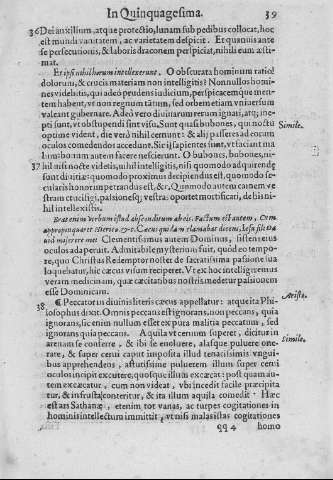 In Quinquagesima. 39
36 Dei auxilium, atque protectio, lunam sub pedibus collocat, hoc
est mundi vanitatem, ac varietatem despicit. Et quamuis ante
se persecutionis, & laboris draconem perspiciat, nihili eum æsti-
mat.
Et ipsi nihil horum intellexerunt. O obscurata hominum ratio!
dolorum, & crucis materiam non intelligitis? Nonnullos homi-
nes videbitis, qui adeò prudens iudicium, perspicacemque men-
tem habent, vt non regnum tãtum, sed orbem etiam vniuersum
valeant gubernare. Adeò vero diuinarum rerum ignari, atq; ine-
pti sunt, vt obstupendi sint viso. Sunt quasi bubones, qui noctu
optime vident, die verò nihil cernunt: & alij passeres ad eorum
oculos comedendos accedunt. Sic isti sapientes sunt, vt faciant ma
lum bonum autem facere nescierint. O bubones, bubones, ni-
37 hil nisi nocte videtis, nihil intelligitis, nisi quomodo adquirendę
sunt diuitiæ: quomodo proximus decipiendus est, quomodo se-
cularis honor impetrandus est, &c. Quomodo autem carnem ve
stram crucifigi, passionesq; vestras oportet mortificari, de his ni-
hil intellexistis.
Simile.
Erat enim Verbum istud absconditum ab eis. Factum est autem, Cum
appropinquaret Iericho, &c. Cæcus quidam clamabat dicens, Iesu fili Da
uid miserere mei. Clementissimus autem Dominus, sistens eius
oculos aperuit. Admirabile mysterium fuit, quòd eo tempo-
re, quo Christus Redemptor noster de sacratissima passione sua
loquebatur, hic cæcus visum reciperet. Vt ex hoc intelligemus
veram medicinam, quæ cæcitatibus nostris medetur passionem
esse Dominicam.
38 ¶ Peccator in diuinis literis cæcus appellatur: atque ita Phi-
losophus dixit. Omnis peccans est ignorans, non peccans, quia
ignorans, sic enim nullum esset ex pura malitia peccatum, sed
ignorans quia peccans. Aquila vt ceruum superet, dicitur in
arenam se conferre, & ibi se euoluere, alasque puluere one-
rare, & super cerui caput imposita illud tenacissimis vngui-
bus apprehendens, astutissime puluerem illum super cerui
oculos incipit excutere, quosque illum excæcat: postquam au-
tem excæcatur, cum non videat, vbi incedit facile præcipita
tur, & in frusta conteritur, & ita illum aquila comedit. Hæc
est ars Sathanæ, etenim tot vanas, ac turpes cogitationes in
hominis intellectum immittit, vt nisi malas istas cogitationes
Simile.
qq 4 homo